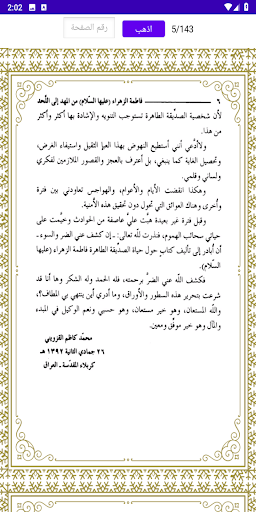 2:02
رقم الصفحة
اذهب
5/143
٦ فاطمة الزهراء (عليها السّلام) من المهد إلى اللّحد
لأن شخصية الصدّيقة الطاهرة تستوجب التنويه والإشادة بها أكثر وأكثر
من هذا.
ولا ادّعي أنني أستطيع النهوض بهذا العبأ الثقيل واستيفاء الغرض،
وتحصيل الغاية كما ينبغي، بل أعترف بالعجز والقصور الملازمين لفكري
ولساني وقلمي.
وهكذا انقضت الأيام والأعوام، والهواجس تعاودني بين فترة
وأخرى وهناك العوائق التي تحول دون تحقيق هذه الأمنية.
وقبل فترة غير بعيدة هبّت عليّ عاصفة من الحوادث وخيّمت على
حياتي سحائب الهموم، فنذرت للّه تعالى: ـ إن كشف عني الضر والسوء ـ
أن أبادر إلى تأليف كتاب حول حياة الصديقة الطاهرة فاطمة الزهراء (عليها
السلام).
فكشف اللّه عني الضرّ برحمته، فله الحمد وله الشكر وها أنا قد
شرعت بتحرير هذه السطور والأوراق، وما أدري أين ينتهي بي المطاف؟،
واللّه المستعان، وهو خير مستعان، وهو حسبي ونعم الوكيل في المبدء
والمآل وهو خير موفّق ومعين.
محمّد كاظم القزويني
٢٦ جمادي الثانية ١٣٩٢ هـ
كربلاء المقدّسة ـ العراق